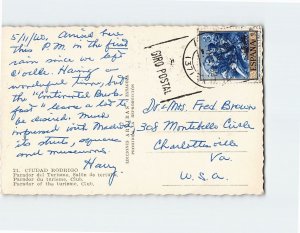 5/11/60. Arrived here
this P.M. in the first
rain since we left
d'ville. Having a
wonderful time, but
the "Continental Break-
fast" leaves a lot to
be desired. Much
impressed with Madrid
its streets, squares
and museums.
Harry
21. CIUDAD RODRIGO
Parador del Turismo. Salón de tertulia
Parador du turisme. Club.
Parador of the turisme. Club.
GIRO POSTAL
ESPAÑA
Dr. & Mrs. Fred Brown
308 Montebello Circle
Charlottesville
Va.
U.S.A.